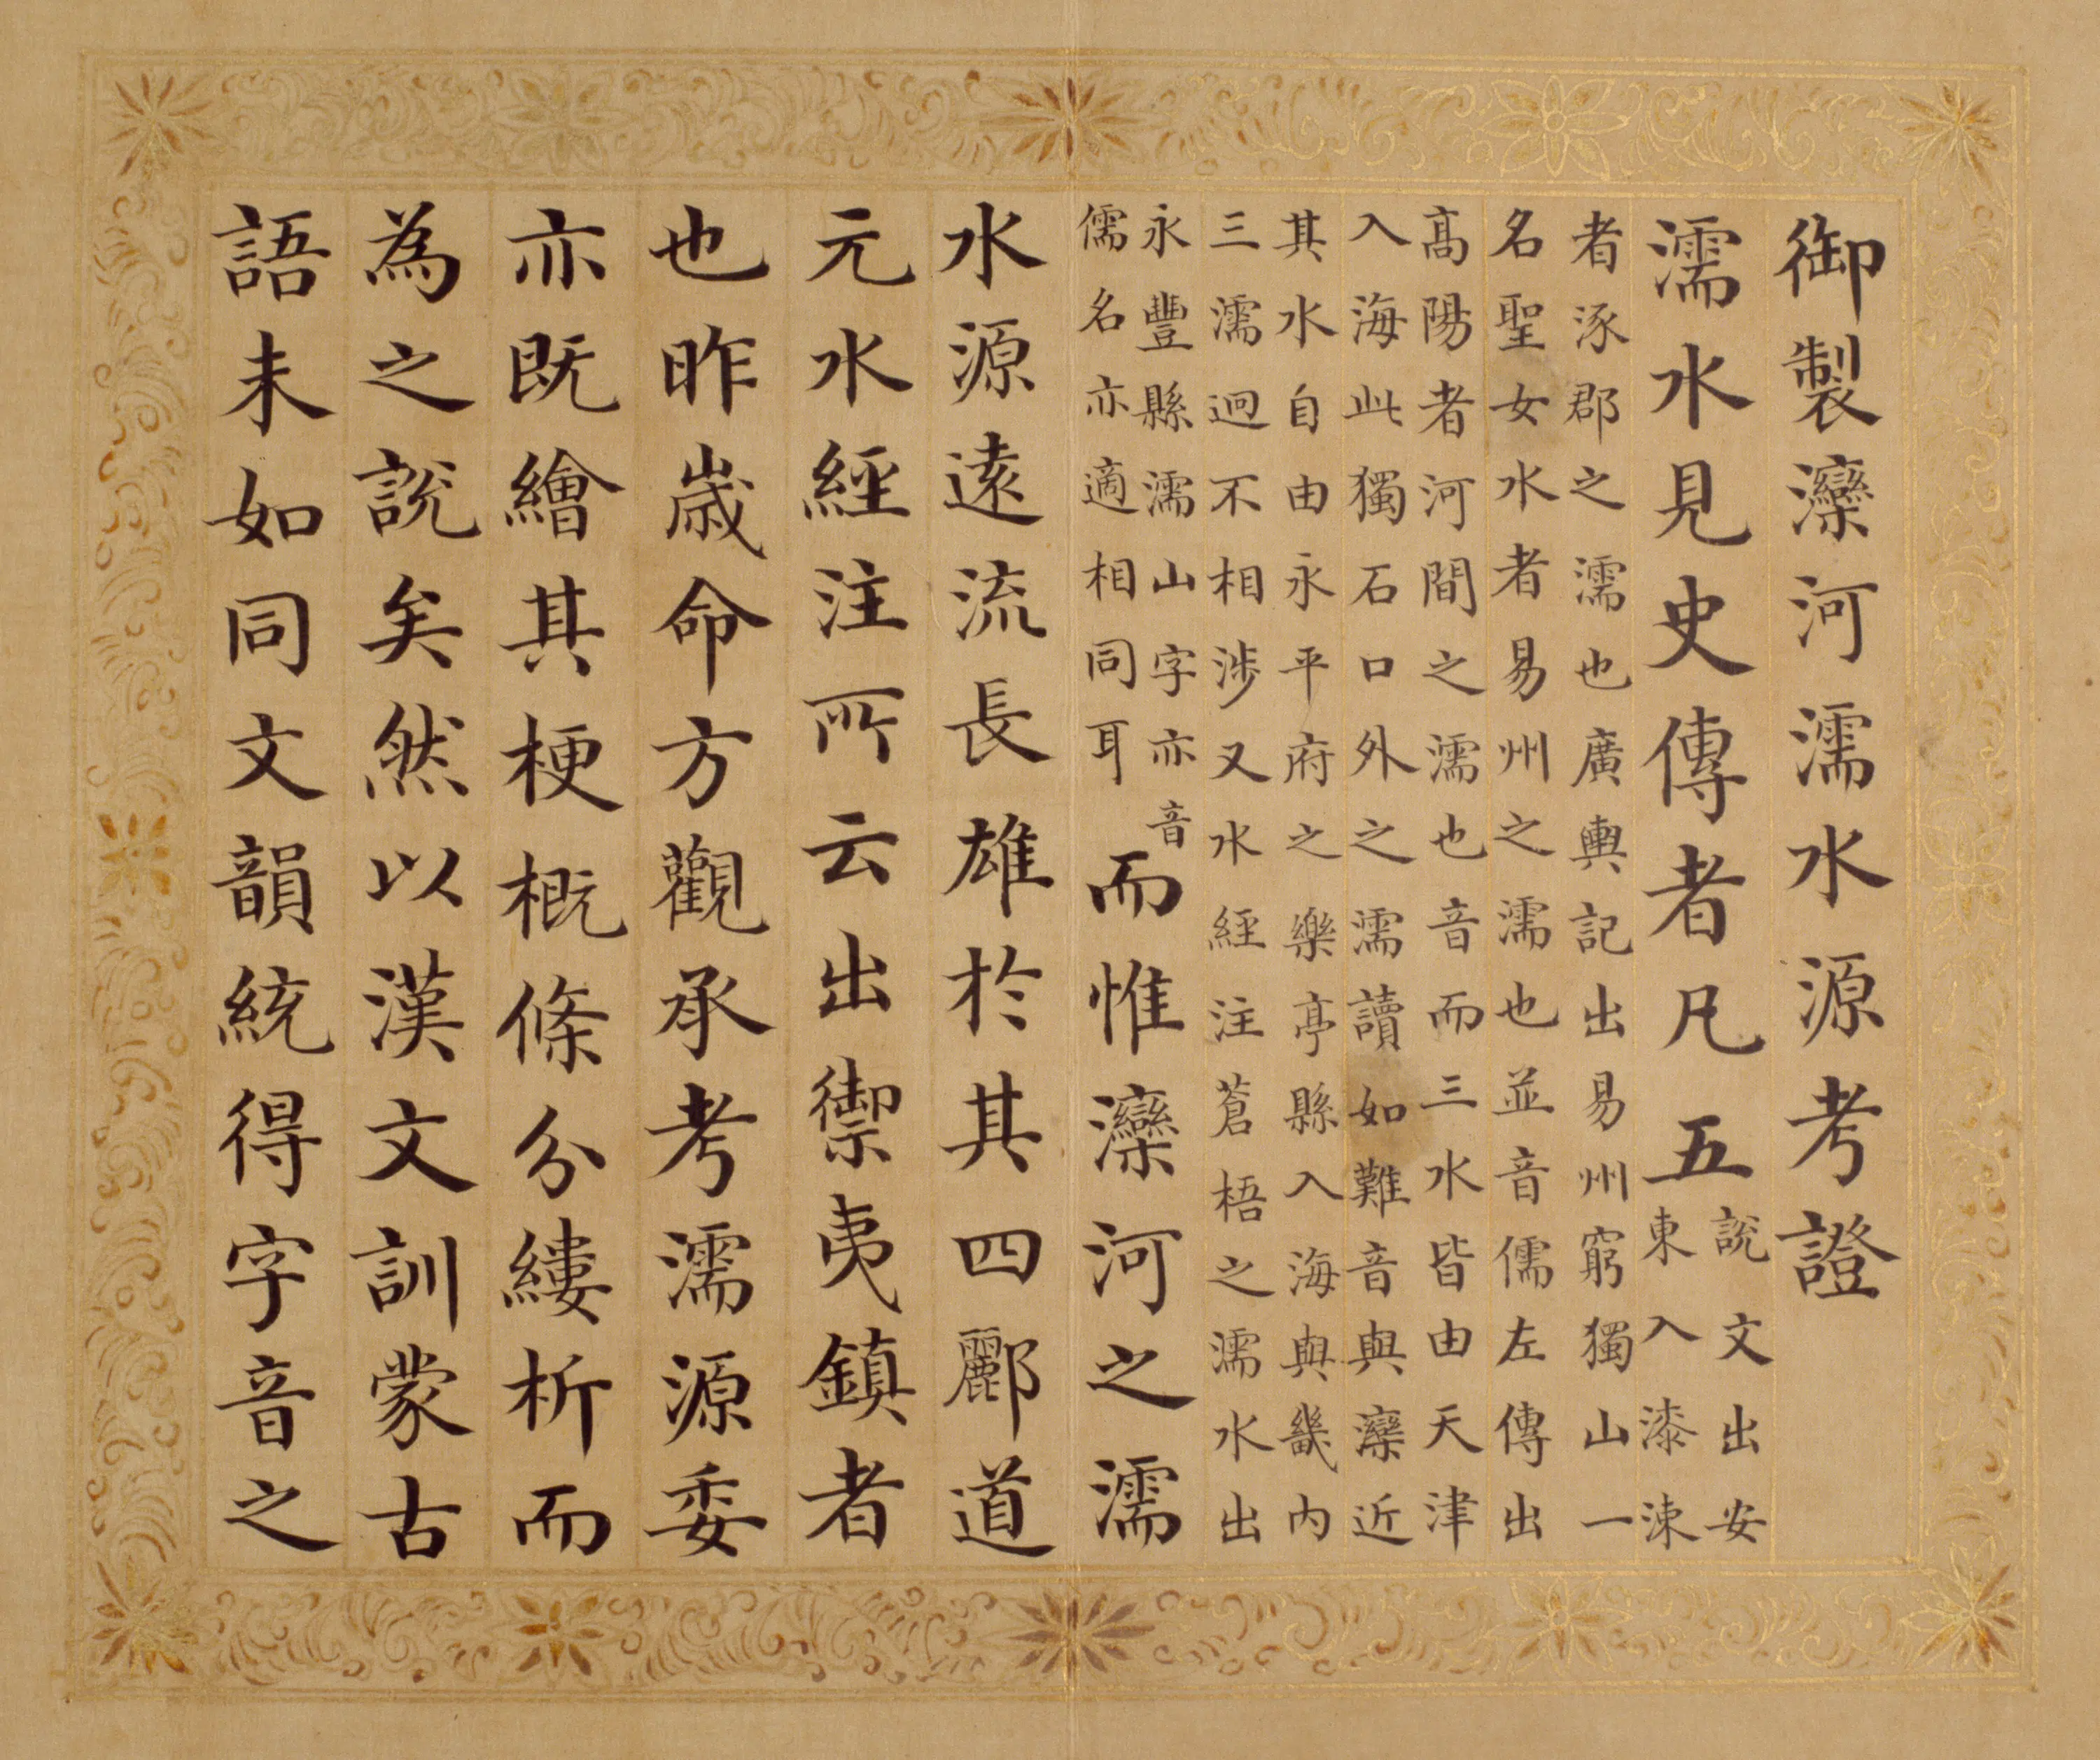 御製灤河濡水源考證
濡水見史傳者凡五
說文出安
東入漆涑
者涿郡之濡也廣輿記出易州窮獨山一
名聖女水者易州之濡也並音儒左傳出
髙陽者河間之濡也音而三水皆由天津
入海此獨石口外之濡讀如難音與灤近
其水自由永平府之樂亭縣入海與畿內
三濡迥不相涉又水經注蒼梧之濡水出
永豐縣濡山字亦音
儒名亦適相同耳
而惟灤河之濡
水源遠流長雄於其四酈道
元水經注所云出禦夷鎮者
也昨歲命方觀承考濡源委
亦既繪其梗概條分縷析而
為之說矣然以漢文訓蒙古
語未如同文韻統得字音之